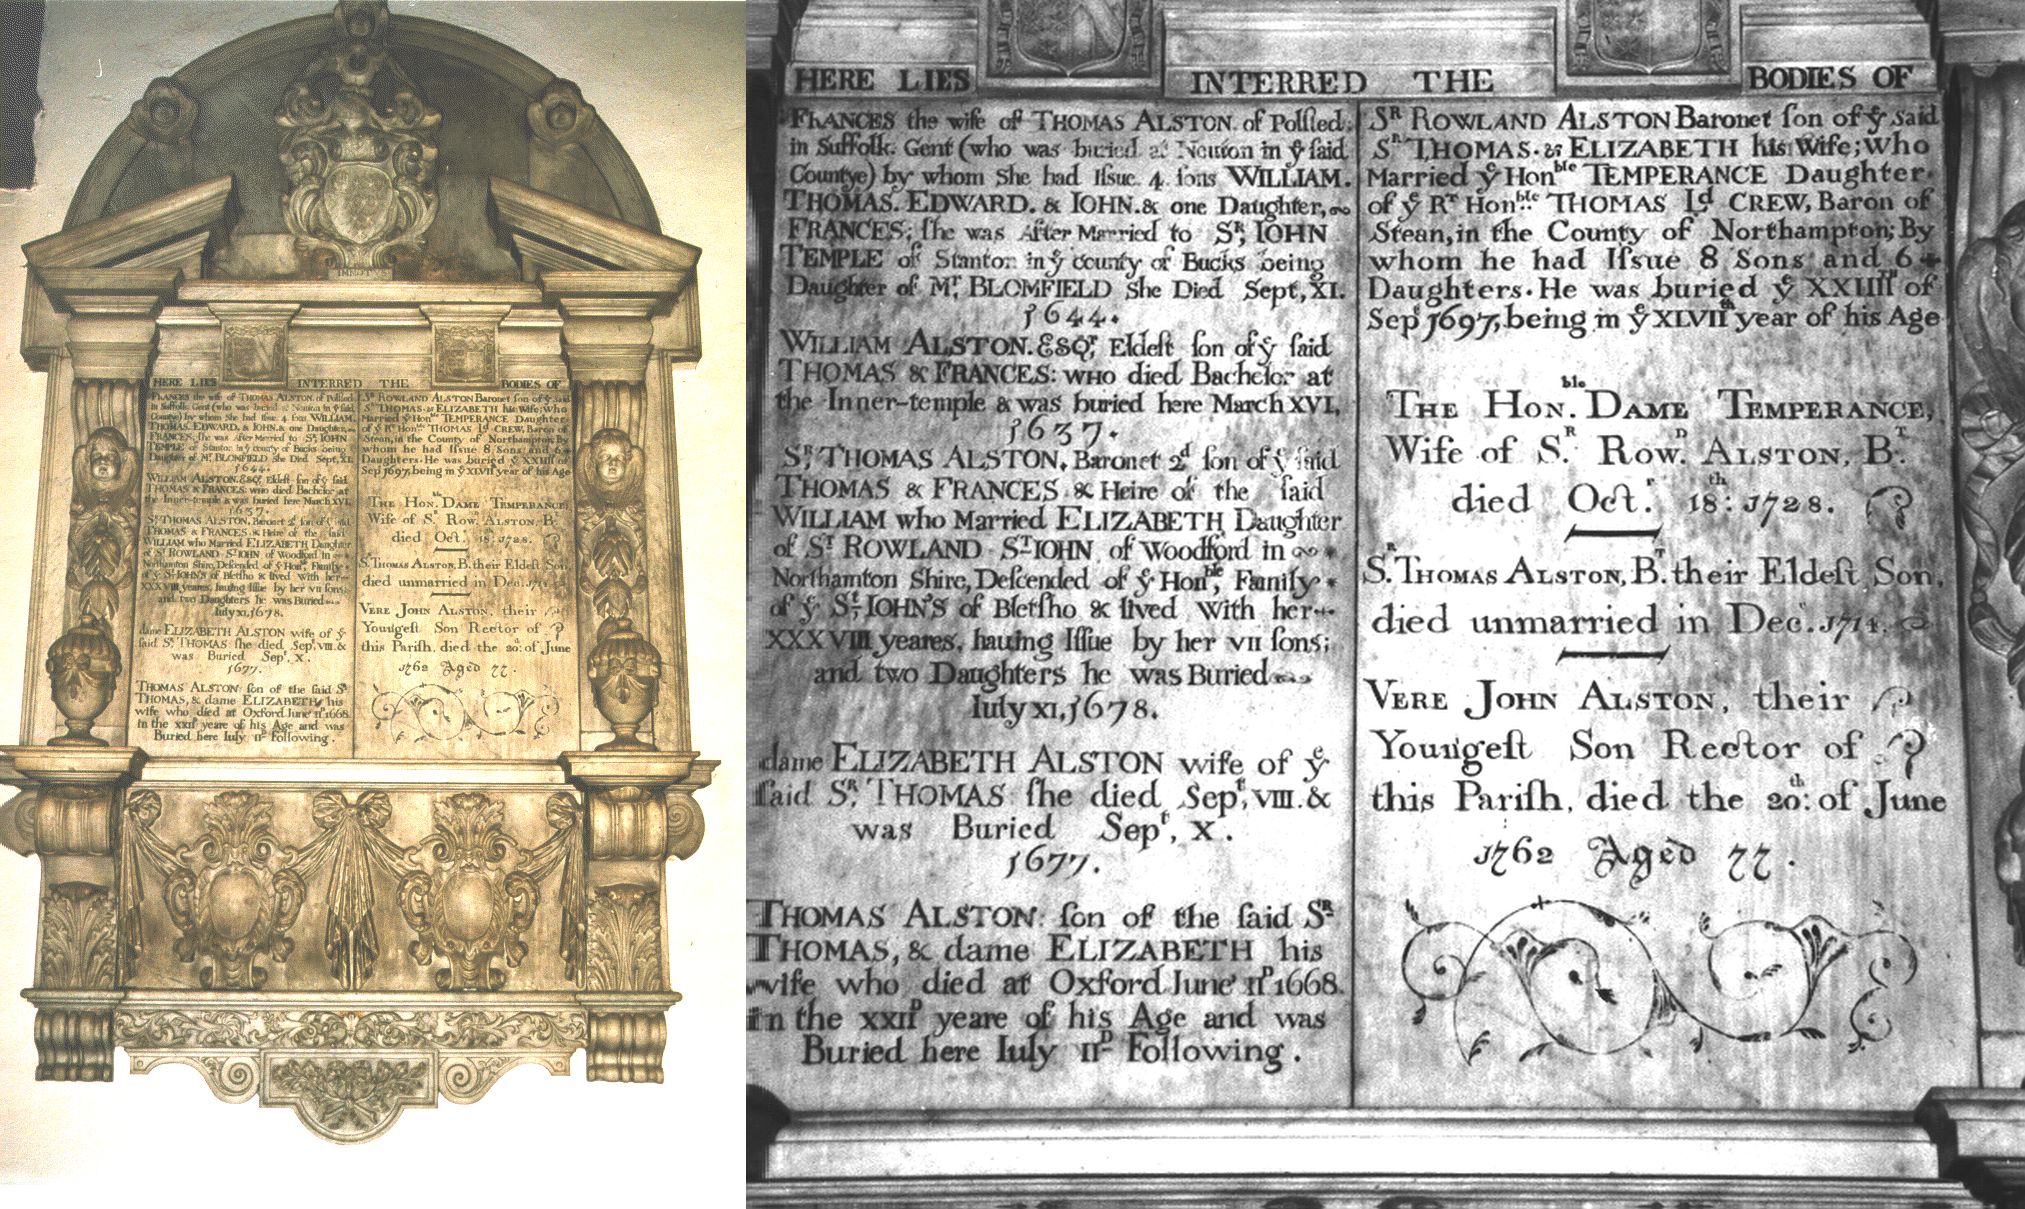 HERE LIES INTERRED THE BODIES OF
FRANCES the wife of THOMAS ALSTON. of Polſled.
in Suffolk. Gent (who was buried at Neuton in yͤ ſaid
Countye) by whom She had Iſsue. 4. ſons WILLIAM.
THOMAS. EDWARD. & IOHN. & one Daughter,
FRANCES; ſhe was After Married to Sᴿ, IOHN
TEMPLE of Stanton in yͤ county of Bucks being
Daughter of Mʳ. BLOMFIELD She Died Sept, XI.
1644.
WILLIAM ALSTON. ESQʳ, Eldeſt ſon of yͤ ſaid
THOMAS & FRANCES: WHO died Bachelor at
the Inner-temple & was buried here March XVI,
1637.
Sᴿ, THOMAS ALSTON, Baronet 2ᵈ ſon of yͤ ſaid
THOMAS & FRANCES & Heire of the ſaid
WILLIAM who Married ELIZABETH Daughter
of Sᵀ ROWLAND Sᵀ IOHN of Woodford in
Northamton Shire, Deſcended of yͤ Honᵇˡᵉ, Family
of yͤ Sᵗ, IOHN'S of Bletſho & lived With her
XXXVIII yeares, hauing Iſſue by her VII ſons;
and two Daughters he was Buried
Iuly XI, 1678.
dame ELIZABETH ALSTON wife of yͤ
ſaid Sᴿ, THOMAS ſhe died Sepᵗ, VIII. &
was Buried Sepᵗ, X.
1677.
THOMAS ALSTON: ſon of the ſaid Sᴿ
THOMAS, & dame ELIZABETH his
wife who died at Oxford June IIᴰ 1668.
in the XXIIᴰ yeare of his Age and was
Buried here Iuly IIᴰ Following.
Sᴿ ROWLAND ALSTON Baronet ſon of yͤ said
Sᴿ THOMAS. & ELIZABETH his Wife; Who
Married yͤ Honᵇˡᵉ TEMPERANCE Daughter.
of yͤ Rᵀ Honᵇˡᵉ THOMAS Lᵈ CREW, Baron of
Stean, in the County of Northampton; By
whom he had Iſsue 8 Sons and 6
Daughters. He was buried yͤ XXIIIIᵗʰ of
Sepᵗ 1697, being in yͤ XLVIIᵗʰ year of his Age
THE HONᵇˡᵉ. DAME TEMPERANCE,
Wife of Sᴿ. ROWᴰ. ALSTON, Bᵀ.
died Octʳ. 18ᵗʰ: 1728.
Sᴿ. THOMAS ALSTON, Bᵀ. their Eldeſt Son,
died unmarried in Decʳ. 1714.
VERE JOHN ALSTON, their
Youngeſt Son Rector of
this Pariſh, died the 20ᵗʰ: of June
1762 Aged 77.